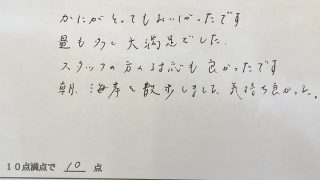 かにがとってもおいしかったです
量も多く大満足でした.
スタッフの方々の対応も良かったです
朝.海岸を散歩しました気持ち良かった。
10点満点で 10 点